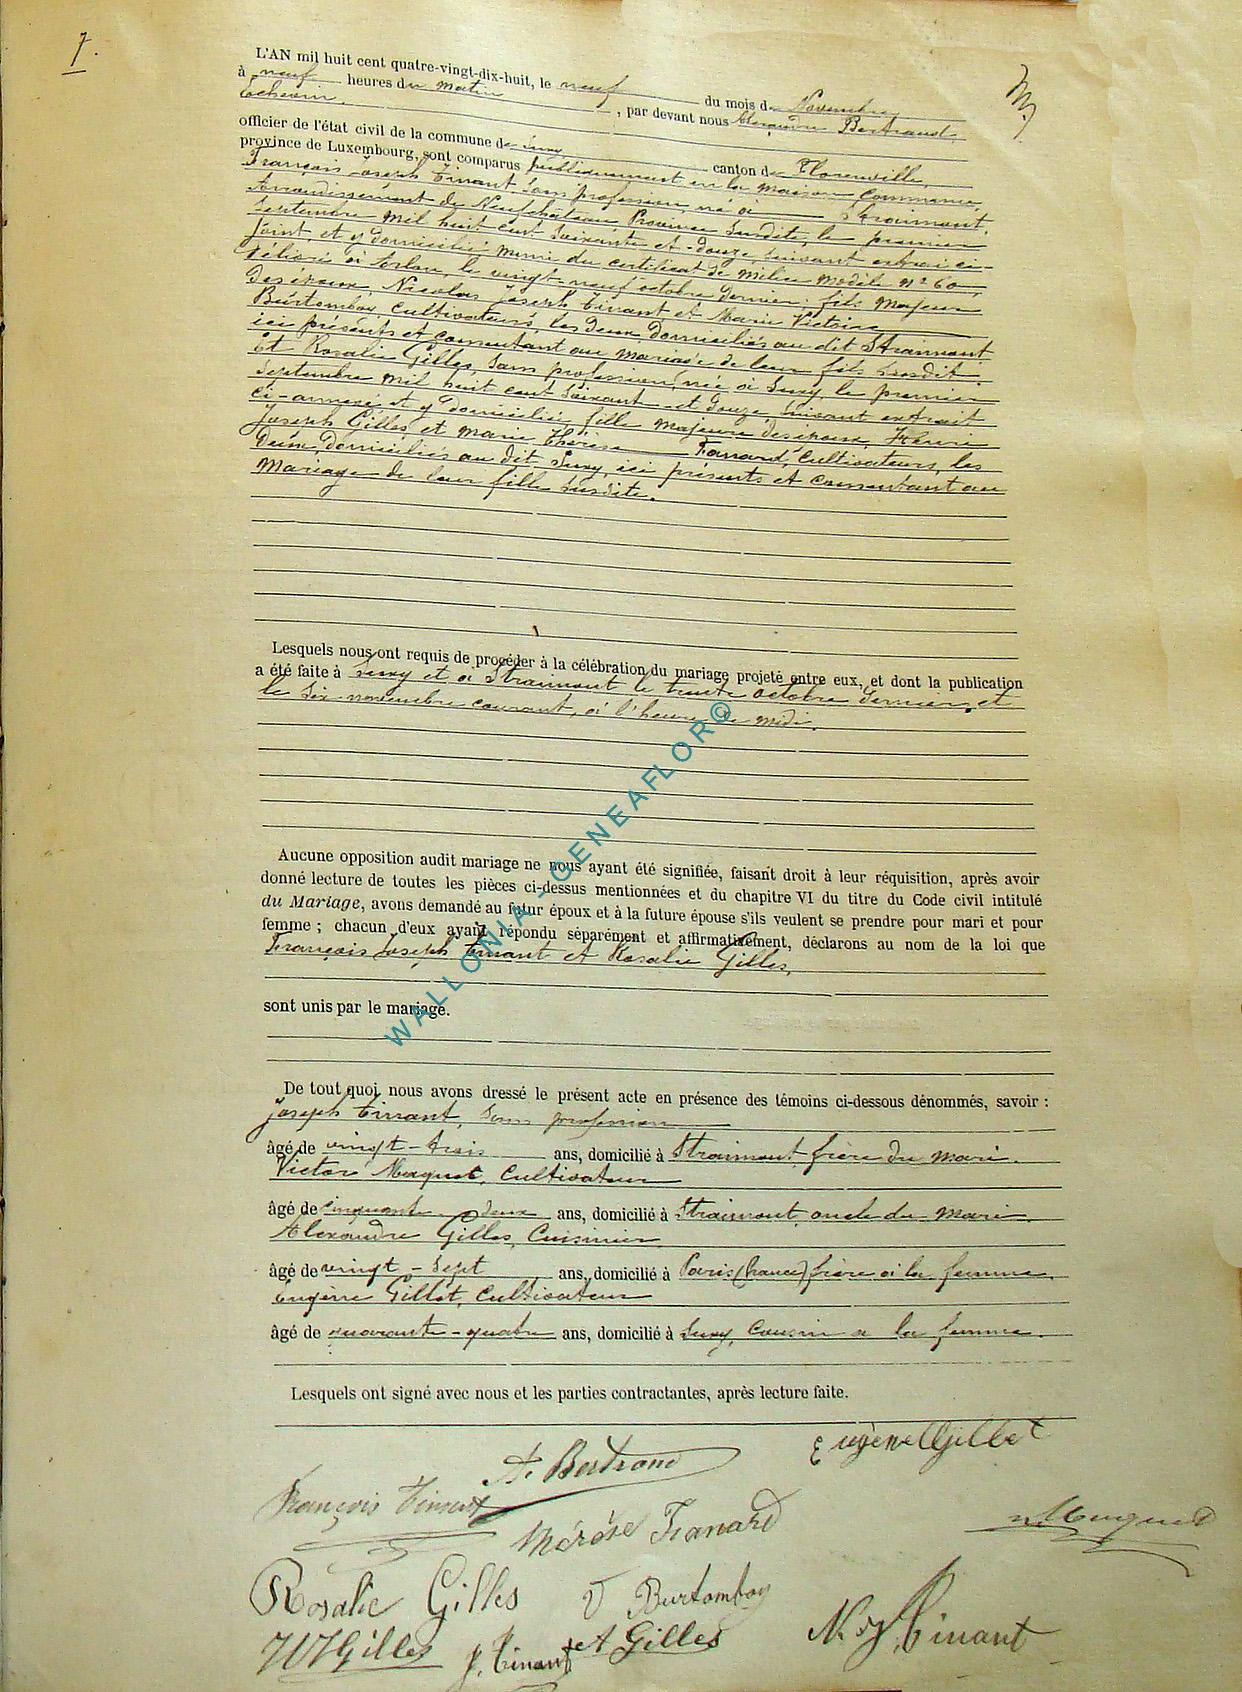 7.
L'AN mil huit cent quatre-vingt-dix-huit, le neuf du mois de Novembre,
à neuf heures du matin, par devant nous Alexandre Bertrand,
Echevin,
officier de l'état civil de la commune de Suxy canton de Florenville,
province de Luxembourg, sont comparus publiquement en la maison commune,
François Joseph Tinant sans profession, né à Straimont,
Arrondissement de Neufchâteau, Province susdite, le premier
Septembre mil huit cent soixante et douze, suivant extrait ci-
joint, et y domicilié, muni du certificat de milice modèle n° 60,
délivré à Arlon, le vingt-neuf octobre dernier, fils majeur
des époux, Nicolas Joseph Tinant et Marie Victoire
Burtomboy, cultivateurs, les deux domiciliés au dit Straimont
ici présents et consentant au mariage de leur fils susdit.
Et Rosalie Gilles, sans profession, née à Suxy, le premier
Septembre mil huit cent soixante et douze, suivant extrait
ci-annexé et y domiciliée, fille majeure des époux, Henri
Joseph Gilles et Marie Thérèse Fanard, cultivateurs, les
deux domiciliés au dit Suxy, ici présents et consentant au
mariage de leur fille susdite.
Lesquels nous ont requis de procéder à la célébration du mariage projeté entre eux, et dont la publication
a été faite à Suxy et à Straimont le trente octobre dernier, et
le six novembre courant, à l'heure de midi.
Aucune opposition audit mariage ne nous ayant été signifiée, faisant droit à leur réquisition, après avoir
donné lecture de toutes les pièces ci-dessus mentionnées et du chapitre VI du titre du Code civil intitulé
du Mariage, avons demandé au futur époux et à la future épouse s'ils veulent se prendre pour mari et pour
femme ; chacun d'eux ayant répondu séparément et affirmativement, déclarons au nom de la loi que
François Joseph Tinant et Rosalie Gilles,
sont unis par le mariage.
De tout quoi nous avons dressé le présent acte en présence des témoins ci-dessous dénommés, savoir :
Joseph Tinant, sans profession
âgé de vingt-trois ans, domicilié à Straimont, frère du mari.
Victor Maquet, Cultivateur
âgé de cinquante-deux ans, domicilié à Straimont, oncle du mari
Alexandre Gilles, Cuisinier
âgé de vingt-sept ans, domicilié à Paris (france) frère à la femme,
Eugène Gillet, Cultivateur
âgé de quarante-quatre ans, domicilié à Suxy, Cousin a la femme.
Lesquels ont signé avec nous et les parties contractantes, après lecture faite.
Eugène Gillet
A. Bertrand
François Tinant
Thérèse Fanard
Rosalie Gilles
V Burtomboy
N. J. Tinant
HJ Gilles
J. Tinant
A Gilles
WALLONIA - GENEAFLOR ©